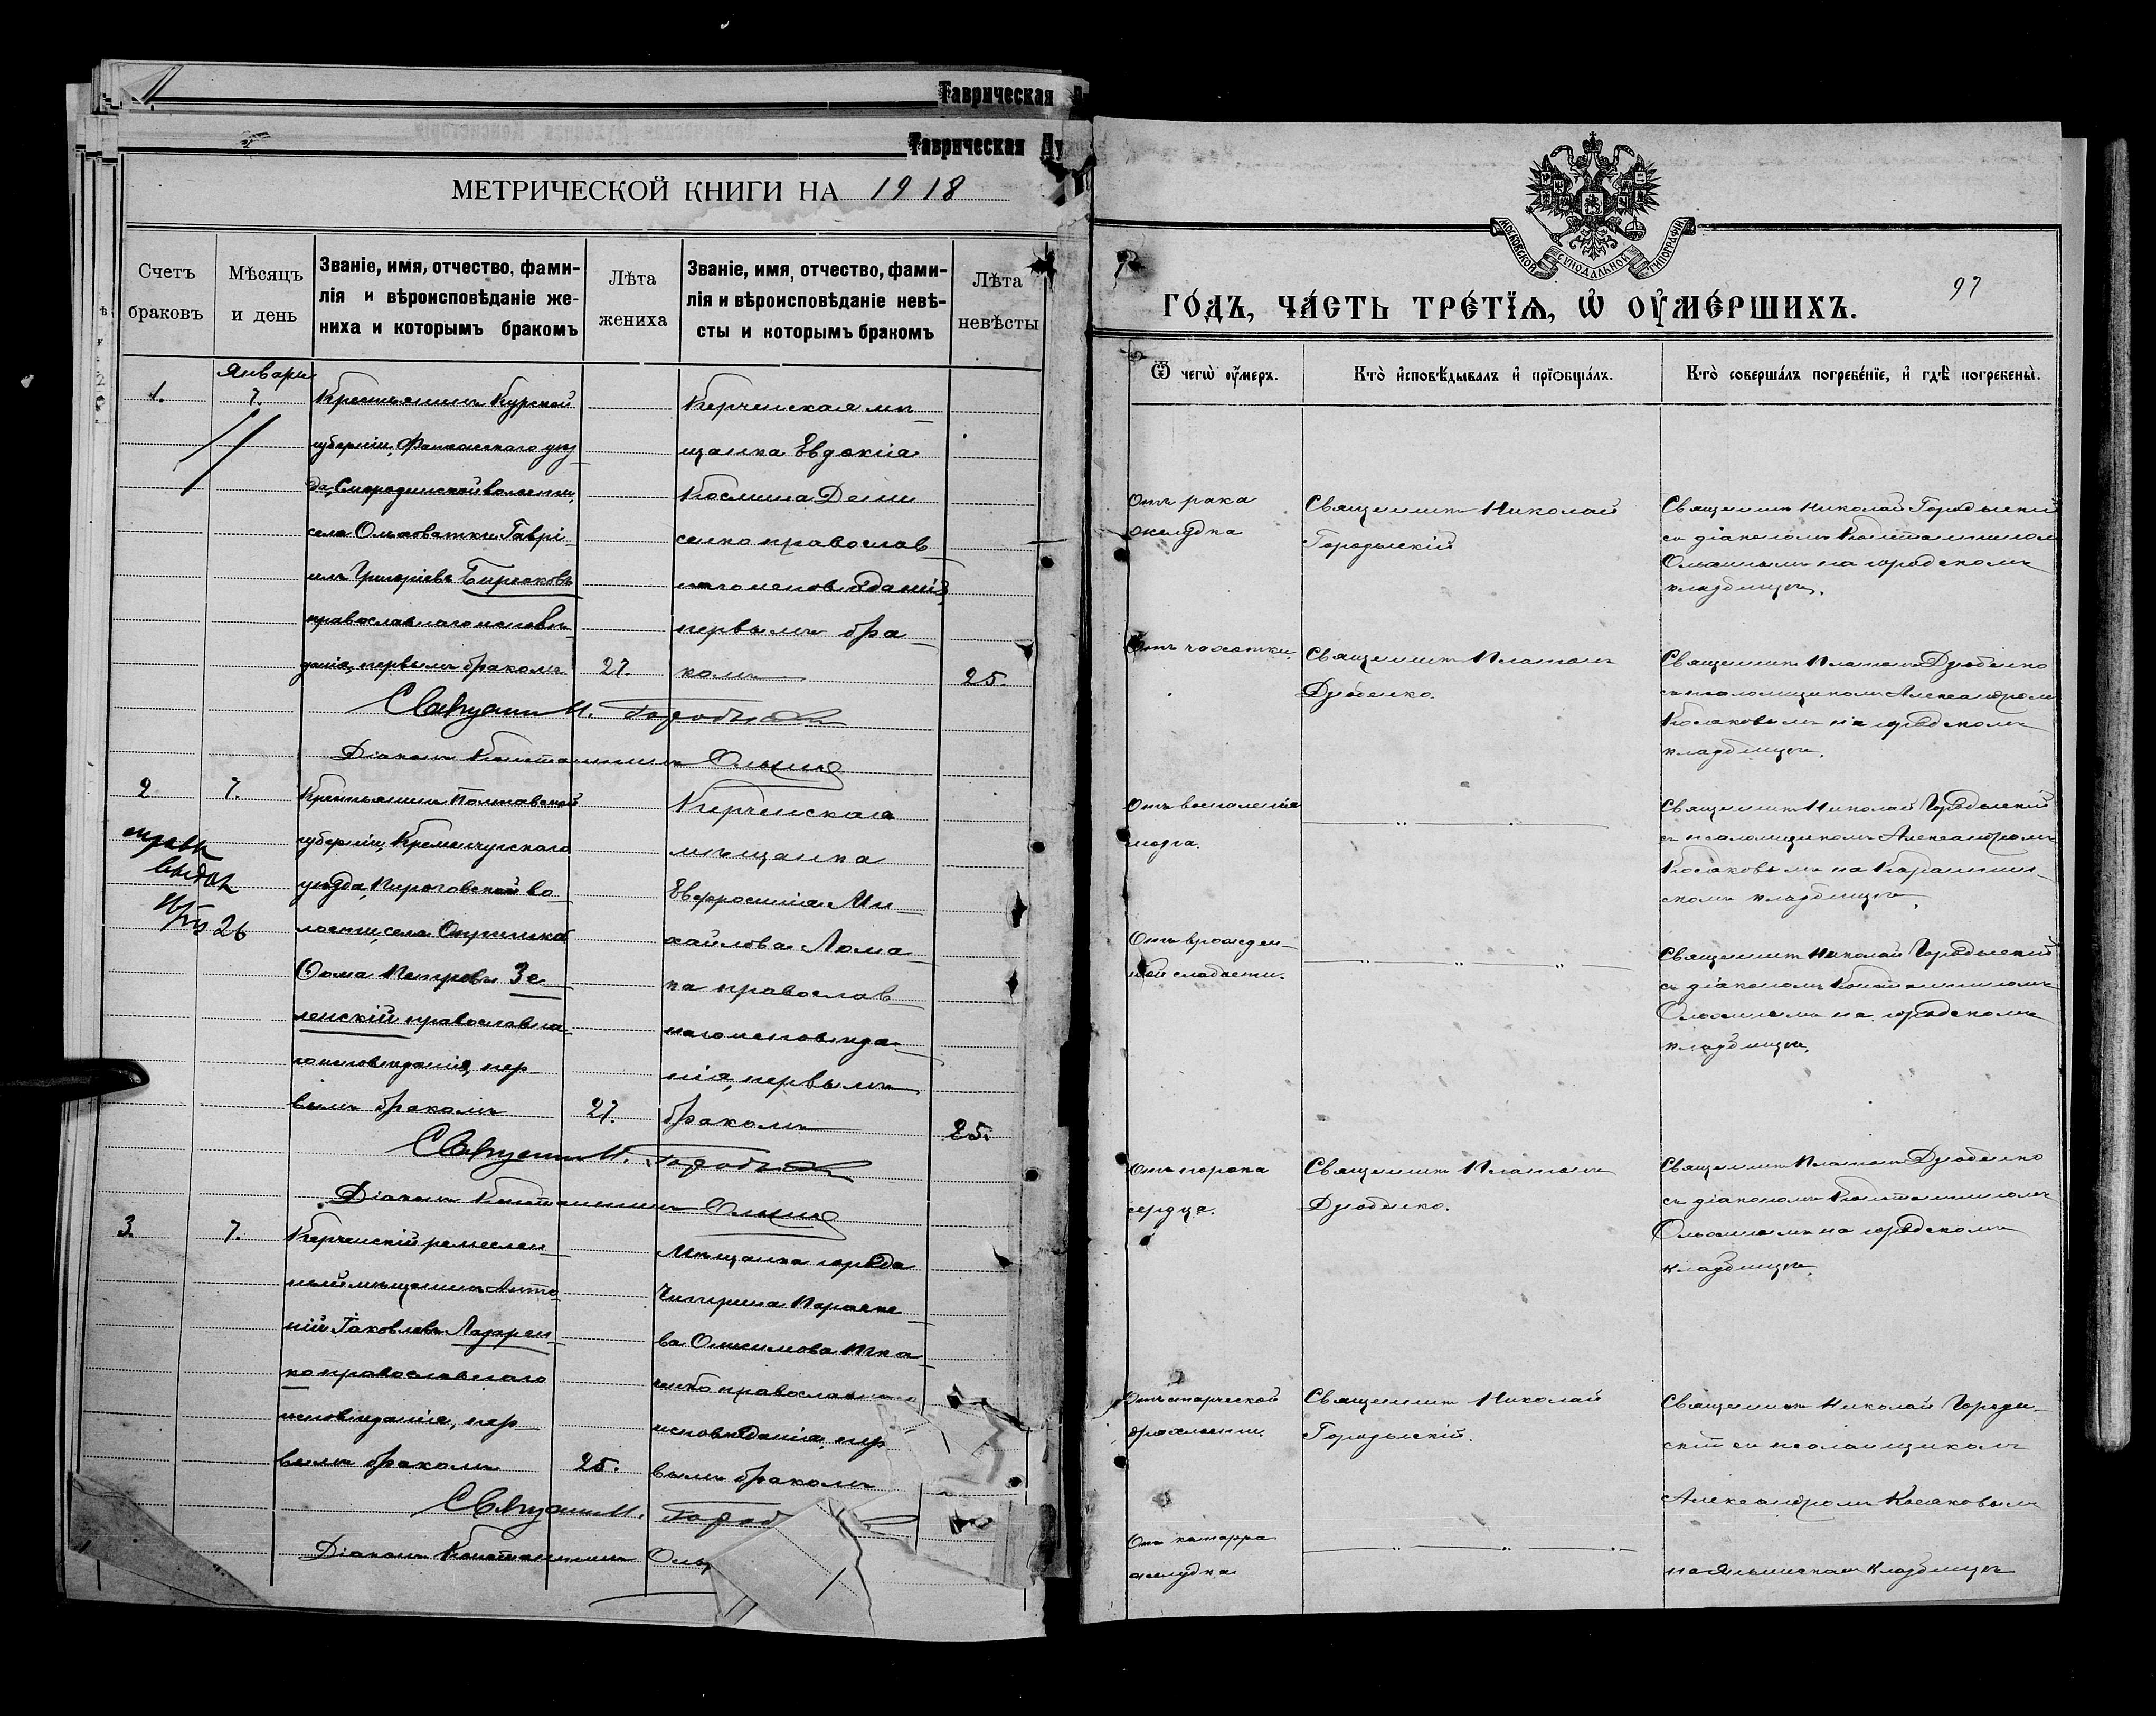 Таврическая
Таврическая Ду
МЕТРИЧЕСКОЙ КНИГИ НА 1918
Счетъ браковъ
Мѣсяцъ и день
Званіе, имя, отчество, фами-
лія и вѣроисповѣданіе же-
ниха и которымъ бракомъ
Лѣта жениха
Званіе, имя, отчество, фами-
лія и вѣроисповѣданіе невѣ-
сты и которымъ бракомъ
Лѣта невѣсты
1.
Январь
7.
Крестьянинъ Курской
губерніи, уѣз-
да, Смородинской волости,
села Ольховатки Гаврі-
илъ Григоріевъ Бирюковъ
православнаго исповѣ-
данія, первымъ бракомъ
27.
Керченская мѣ-
щанка Евдокія
Космина Дени
сенко православ-
наго исповѣданія,
первымъ бра-
комъ
25.
Священникъ Н. Городыскій
Діаконъ Константинъ Ольшин
2
7.
26
Крестьянинъ Полтавской
губерніи, Кременчугскаго
уѣзда, Пироговской во-
лости, села
Ѳома Петровъ Зе-
ленскій православна-
го исповѣданія, пер-
вымъ бракомъ
27.
Керченская
мѣщанка
Евфросинія Ми-
хайлова Лома
ка православ-
наго исповѣда-
нія, первымъ
бракомъ
25.
Священникъ Н. Городыскій
Діаконъ Константинъ Ольшин
3.
7.
Керченскій ремеслен-
ный мѣщанинъ Анто-
ній Іаковлевъ Лазарен-
ко православнаго
исповѣданія, пер-
вымъ бракомъ
25.
Мѣщанка города
Чигирина Параске-
ва Онисимова Тка-
ченко православнаго
исповѣданія, пер
вымъ бракомъ
Священникъ Н. Город
Діаконъ Константинъ Оль
МОСКОВСКОЙ СѴНОДАЛЬНОЙ ТИПОГРАФІИ
97
ГО́ДЪ, ЧА́СТЬ ТРЕ́ТІѦ, Ѡ҆ ОУ҆МЕ́РШИХЪ.
Ѿ чегѡ̀ оу҆́меръ.
Кто̀ и҆сповѣ́дывалъ и҆ прїѡбща́лъ.
Кто̀ соверша́лъ погребе́нїе, и҆ гдѣ̀ погребены̀.
Отъ рака
желудка
Священникъ Николай
Городыскій
Священникъ Николай Городыскій
съ діакономъ Константиномъ
на городскомъ
кладбищѣ.
Отъ чахотки.
Священникъ Платонъ
Дзюбенко.
Священникъ Платонъ Дзюбенко
съ псаломщикомъ Александромъ
Косаковымъ на городскомъ
кладбищѣ.
Отъ воспаленія
мозга.
Священникъ Николай Городыскій
съ псаломщикомъ Александромъ
Косаковымъ на Карантин-
скомъ кладбищѣ.
Отъ врожден-
ной слабости.
Священникъ Николай Городыскій
съ діакономъ Константиномъ
на городскомъ
кладбищѣ.
Отъ порока
сердца.
Священникъ Платонъ
Дзюбенко.
Священникъ Платонъ Дзюбенко
съ діакономъ Константиномъ
на городскомъ
кладбищѣ.
Отъ старческой
дряхлости.
Священникъ Николай
Городыскій.
Священникъ Николай Городы-
скій съ псаломщикомъ
Александромъ Косаковымъ
Отъ катарра
желудка
кладбищѣ